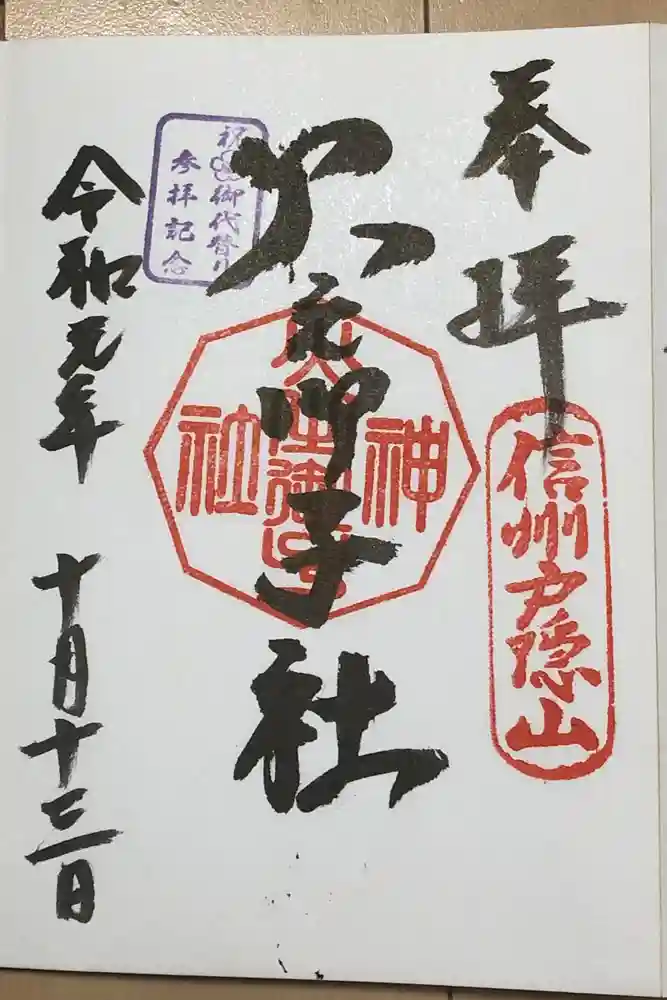 奉拝
信州戸隠山
火之御子社
神
社
祝御代替り
参拝記念
令和元年
十月十三日